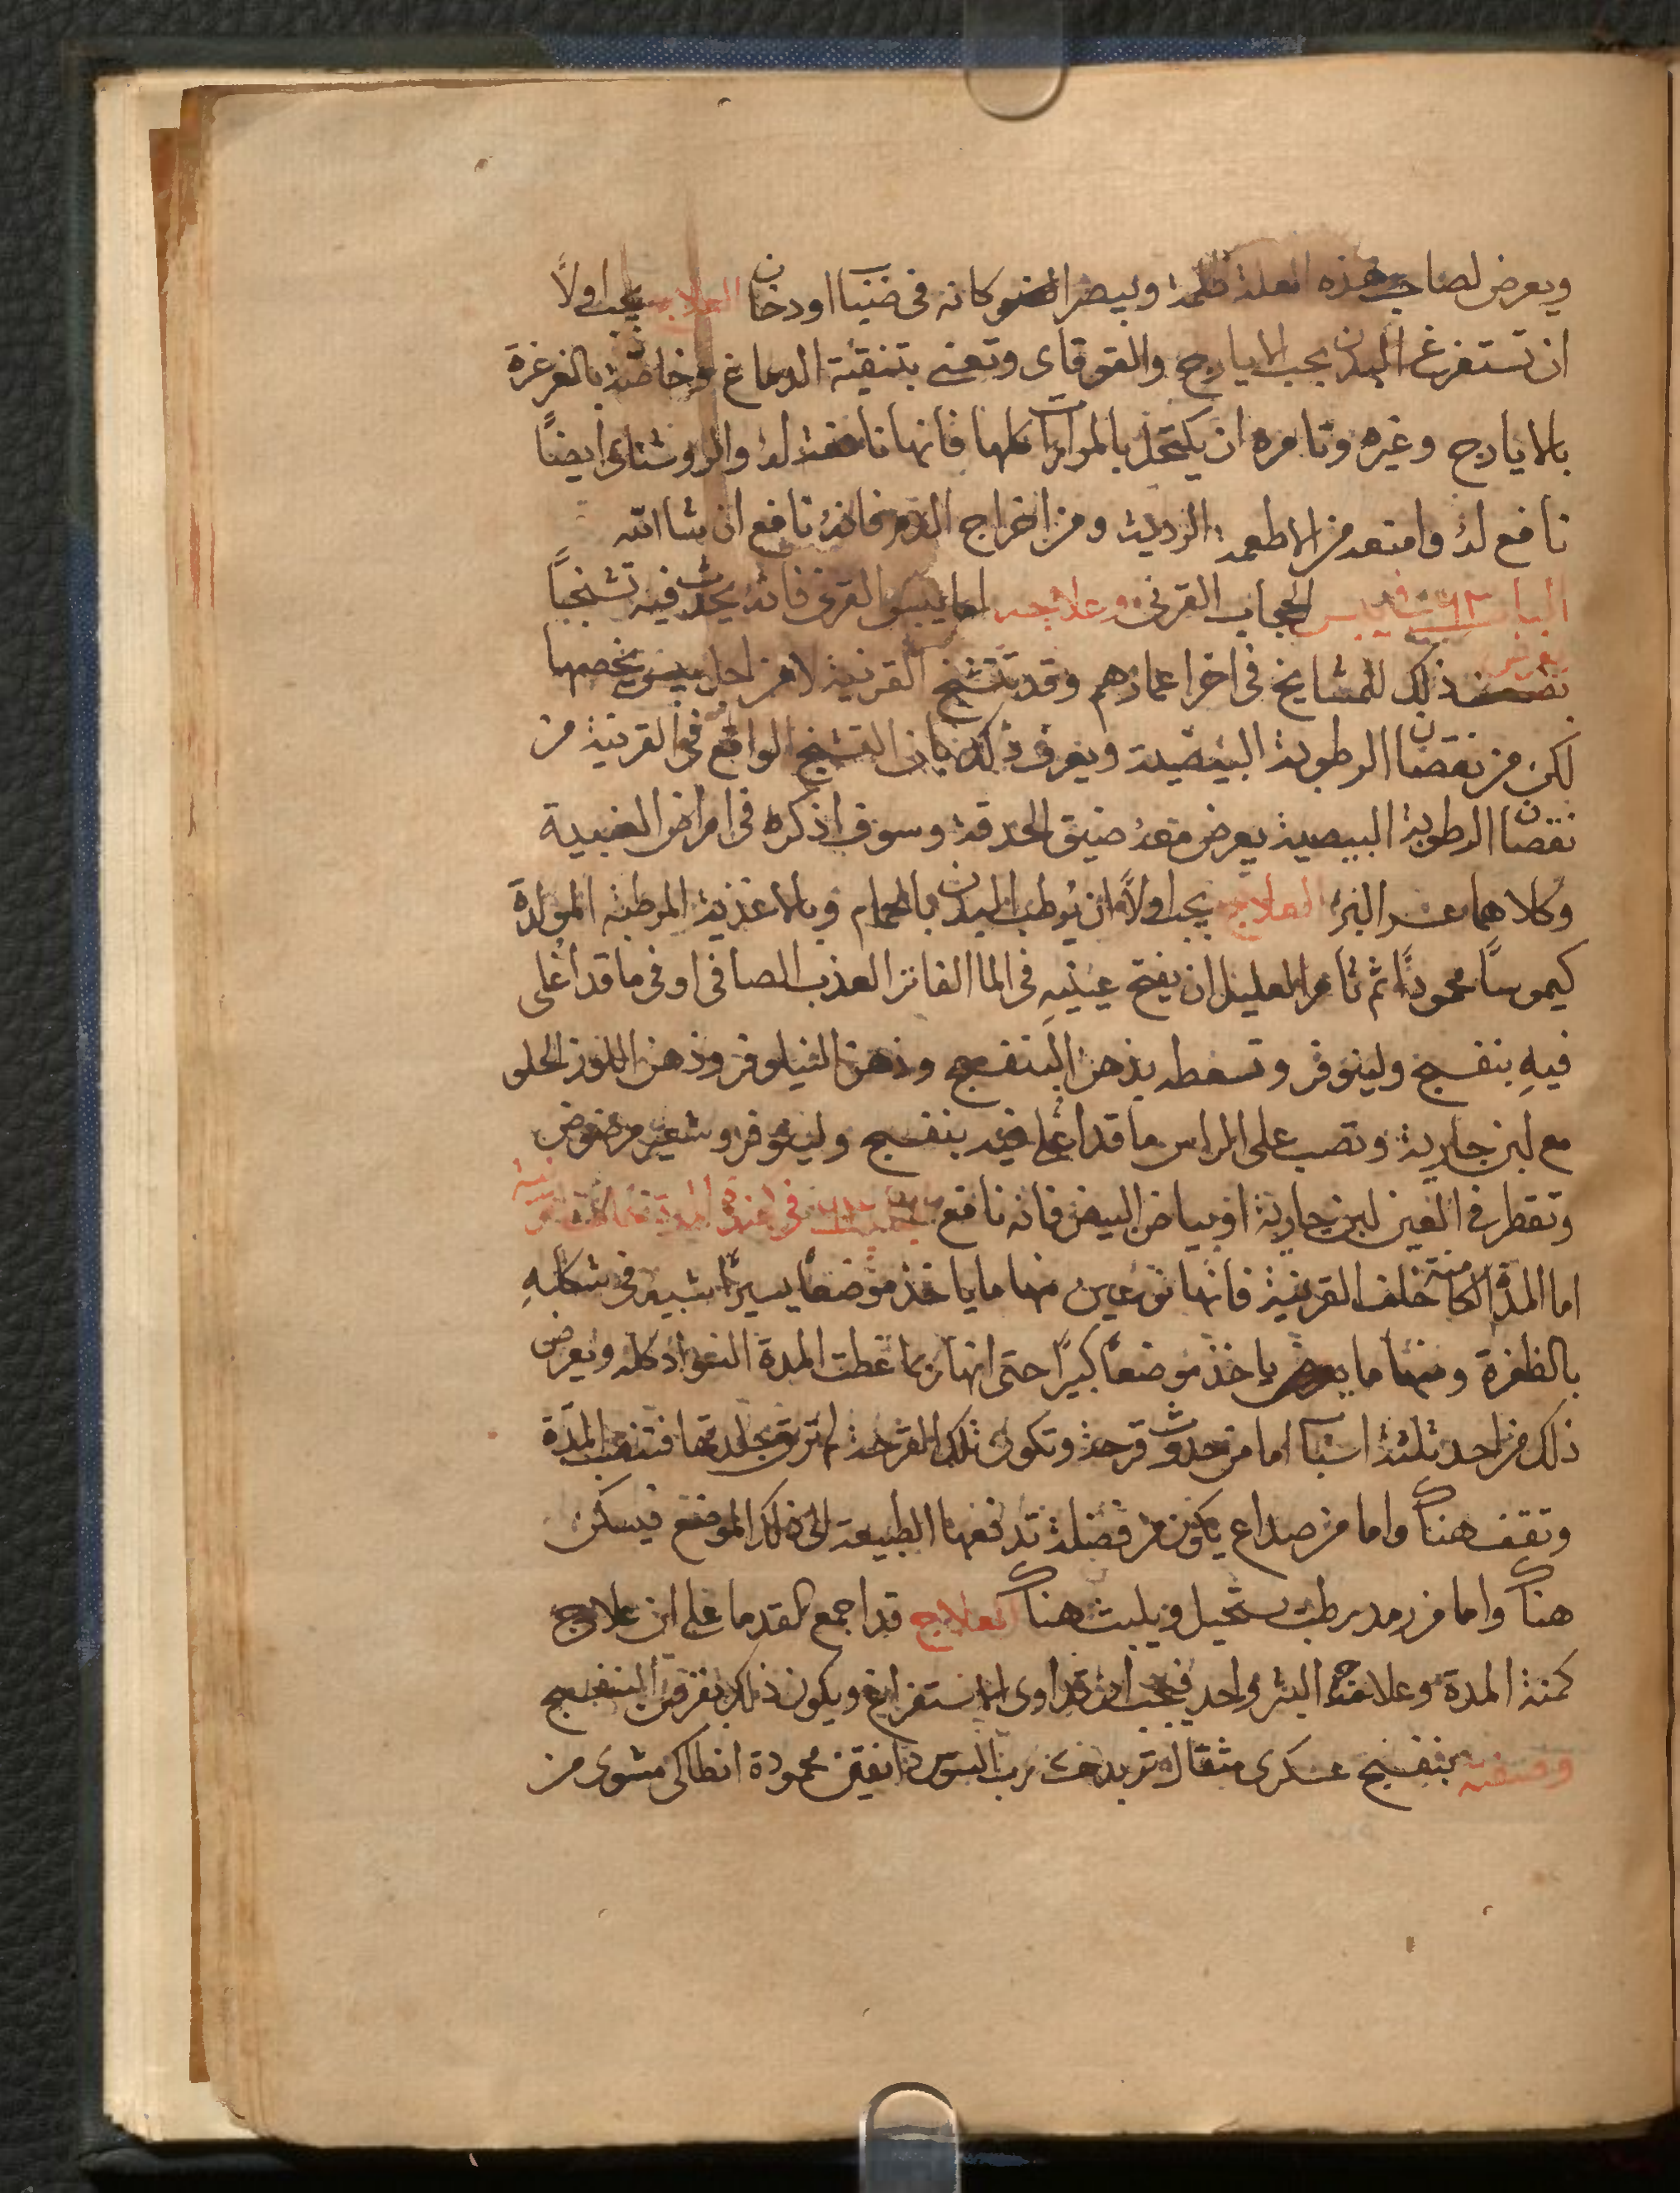 ويعرض لصاحب هذه العلة ظلمة ويبصر الضو كانه في ضباب او دخان العلاج يجب اولاً
ان تستفرغ البدن بحب الايارج والقوقاى وتعنى بتنقية الدماغ وخاصة بالغرغرة
بالايارج وغيره وتامره ان يكتحل بالمرارات كلها فانها نافعة له والروشناى ايضاً
نافع له وامنعه من الاطعمة الردية ومن اخراج الدم فانه نافع ان شا الله
الباب في يبس الحجاب القرنى وعلاجه اما يبس القرنى فانه يحدث فيه تشنجاً
يعرض ذلك للمشايخ في اخر اعمارهم وقد تتشنج القرنية لا من اجل يبس يخصها
لكن من نقصان الرطوبة البيضية ويعرف ذلك بان التشنج الواقع في القرنية من
نقصان الرطوبة البيضية يعرض معه ضيق الحدقة وسوف اذكره في امراض العنبية
وكلاهما عسر البرؤ العلاج يجب اولاً ان يُرطب البدن بالحمام وبالاغذية المرطبة المولدة
كيموساً محموداً ثم تأمر العليل ان يفتح عينيهِ في الما الفاتر العذب الصافى او في ما قد اُغلى
فيهِ بنفسج ولينوفر وتسعطه بدهن البنفسج ودهن النيلوفر ودهن اللوز الحلو
مع لبن جارية وتصب على الراس ما قد اغلى فيه بنفسج ولينوفر وشعير مرضوض
وتقطر في العين لبن جارية او بياض البيض فانه نافع في المدة
اما المدة الكامنة خلف القرنية فانها نوعين منها ما ياخذ موضعاً يسيراً شبيه في شكلهِ
بالظفرة ومنها ما ياخذ موضعاً كبيراً حتى انها ربما غطت المدة السواد كله ويعرض
ذلك من احد ثلثة اسباب اما من حدوث قرحة وتكون تلك القرحة لم ترق جلدتها فتنصب المدّة
وتقف هناك واما من صداع يكون من فضلة تدفعها الطبيعة الى ذلك الموضع فيسكن
هناك واما من رمد رطب يستحيل ويلبث هناك العلاج قد اجمع القدما على ان علاج
كمنة المدة وعلاج البثر واحد فيجب ان تداوى بالاستفراغ ويكون ذلك بقرص البنفسج
وصفته بنفسج عسكرى مثقال تربد رب السوس دانقين محمودة انطاكى مشوى من